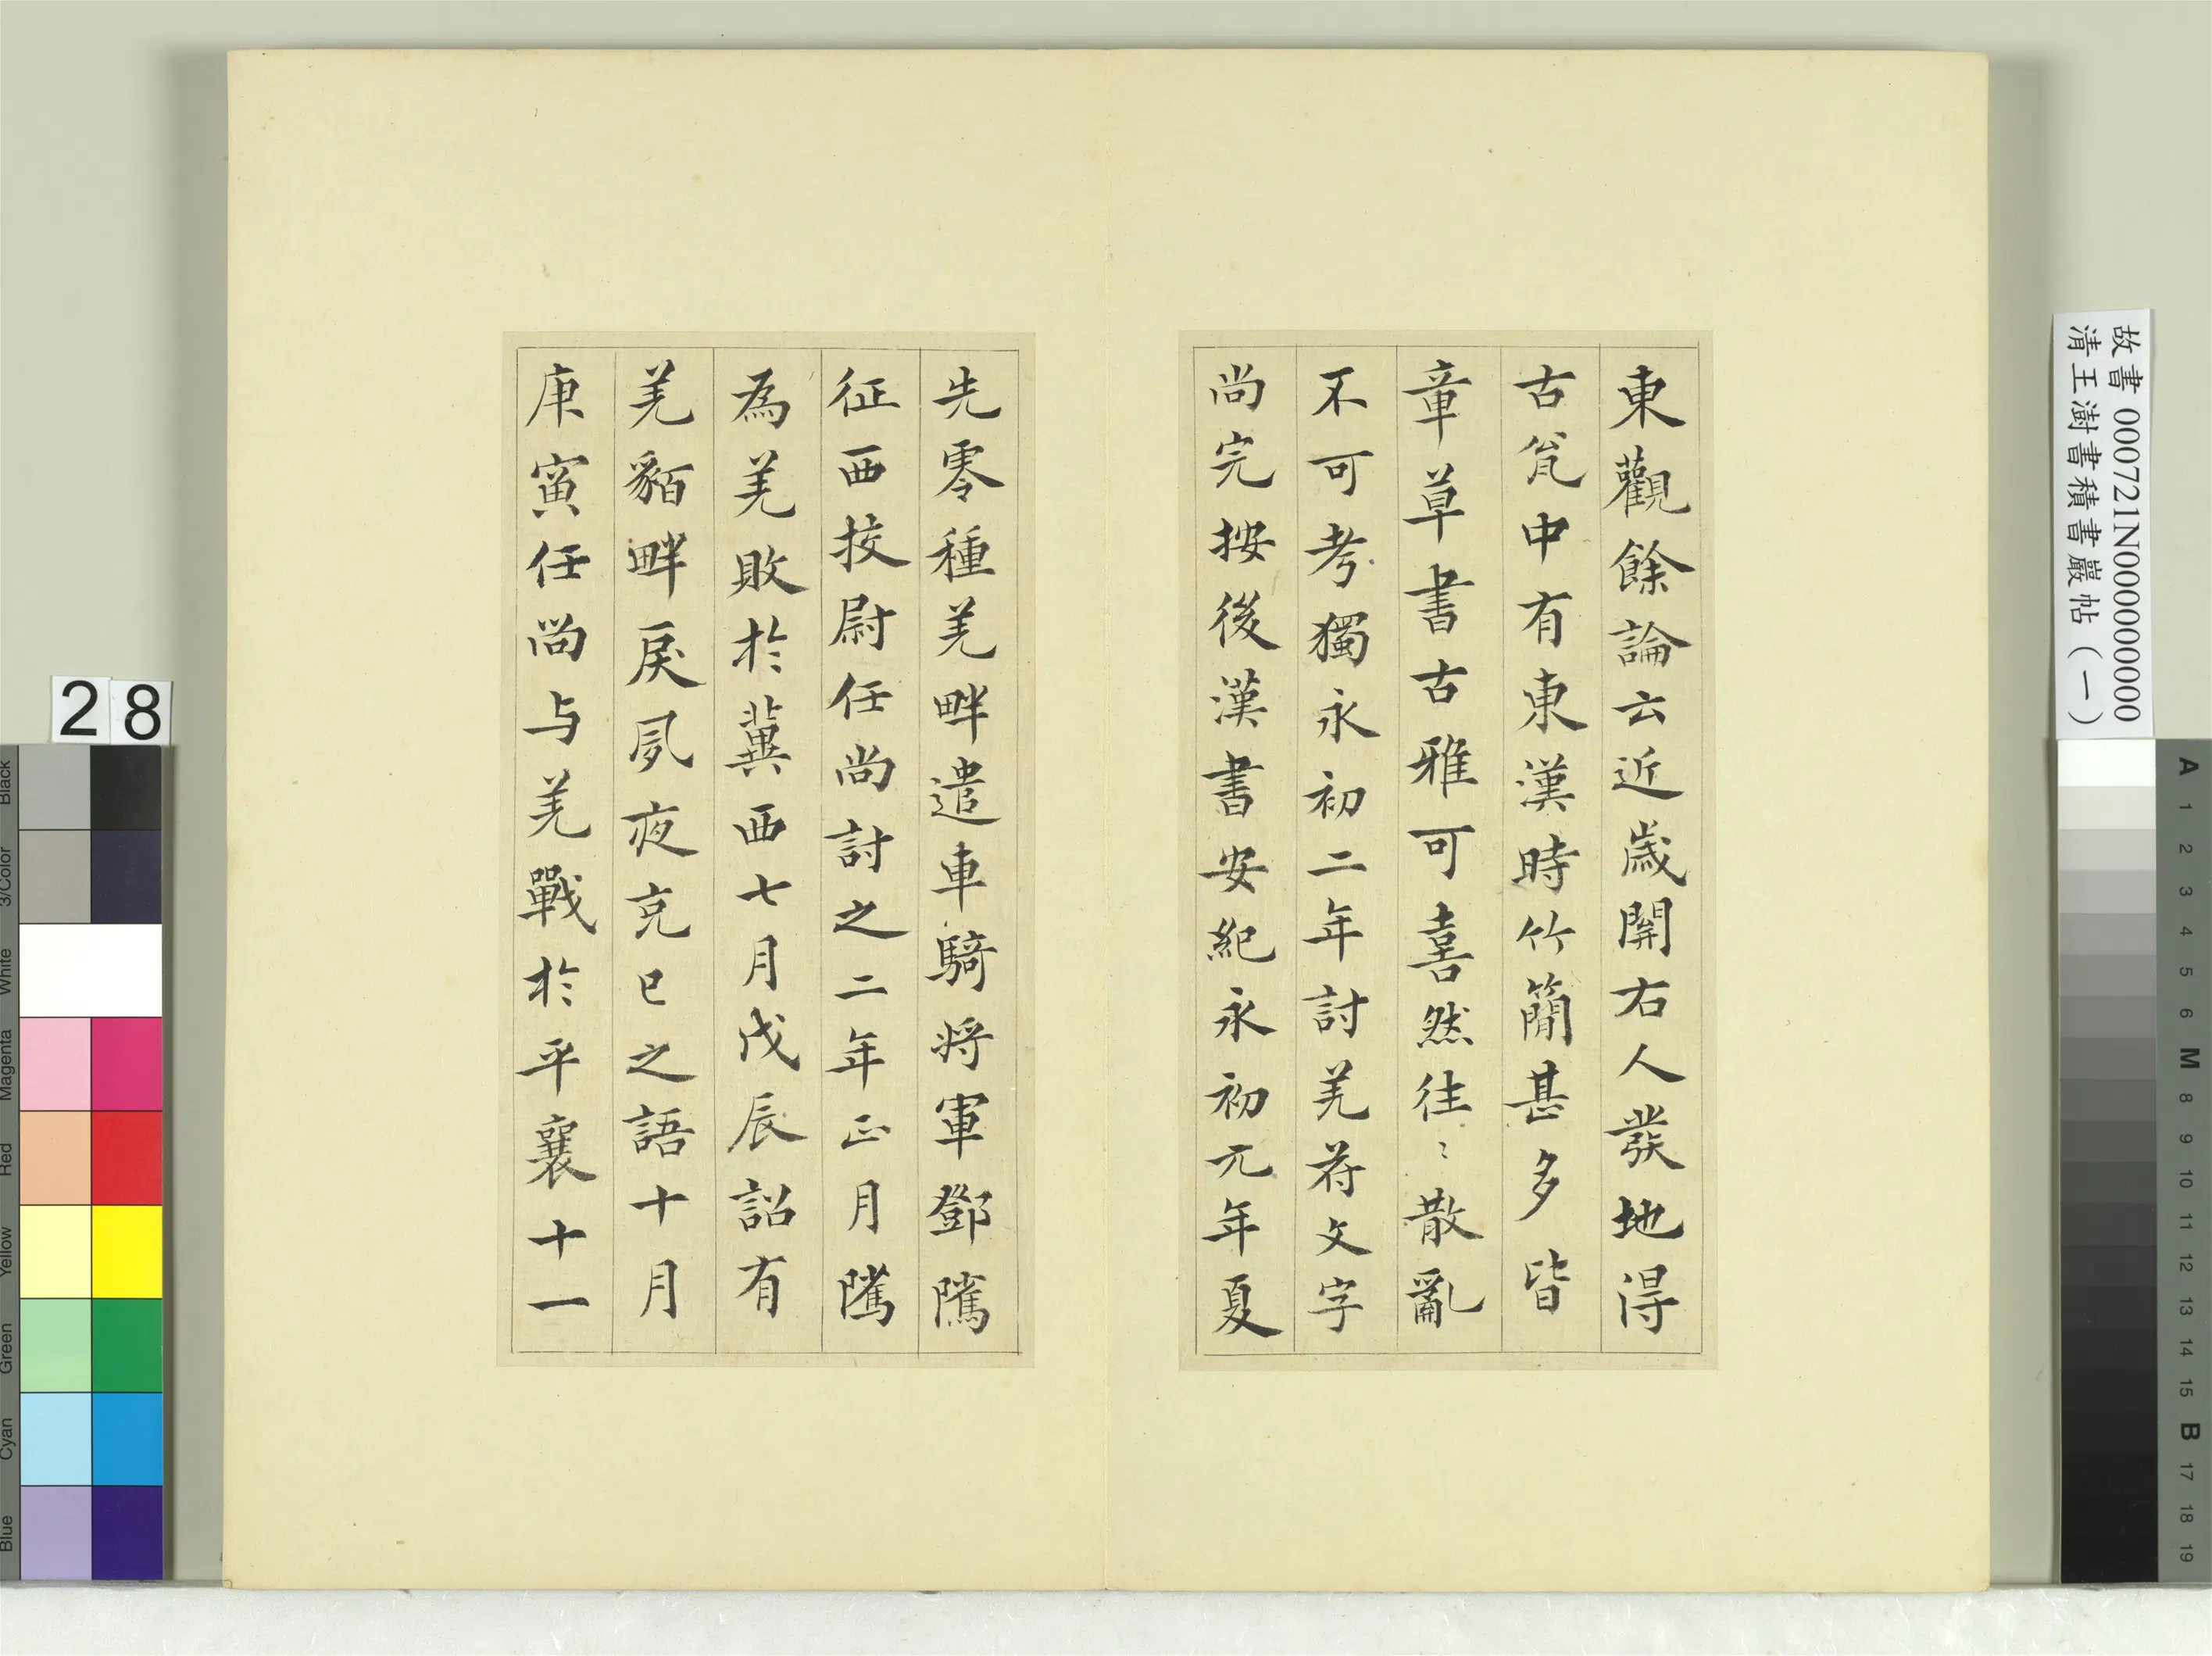 東觀餘論云近歲開右人發地得
古瓮中有東漢時竹簡甚多皆
章草書古雅可喜然往〻散亂
不可考獨永初二年討羌符文字
尚完按後漢書安紀永初元年夏
先零種羌畔遣車騎將軍鄧隲
征西挍尉任尚討之二年正月隲
為羌敗於冀西七月戊辰詔有
羌貊畔戾夙夜克己之語十月
庚寅任尚与羌戰於平襄十一
故書 000721N000000000
清王澍書積書巖帖（一）
28
Black
3/Color
White
Magenta
Red
Yellow
Green
Cyan
Blue
A
1
2
3
4
5
6
M
8
9
10
11
12
13
14
15
B
17
18
19